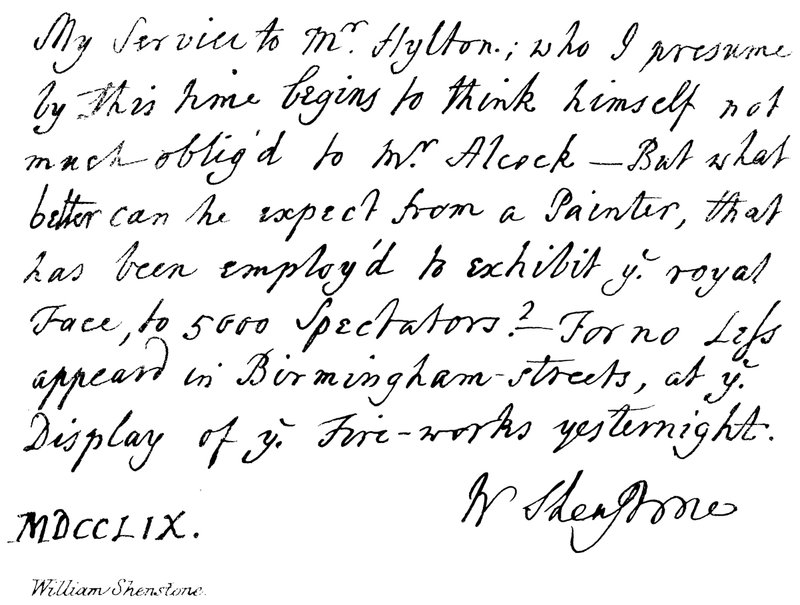 My Service to Mr. Hylton.; who I presume
by this time begins to think himself not
much oblig'd to Mr. Alcock — But what
better can he expect from a Painter, that
has been employ'd to exhibit ye. royal
Face, to 5000 Spectators? — For no Less
appeard in Birmingham-streets, at ye.
Display of ye. Fire-works yesternight.
W Shenstone
MDCCLIX.
William Shenstone.